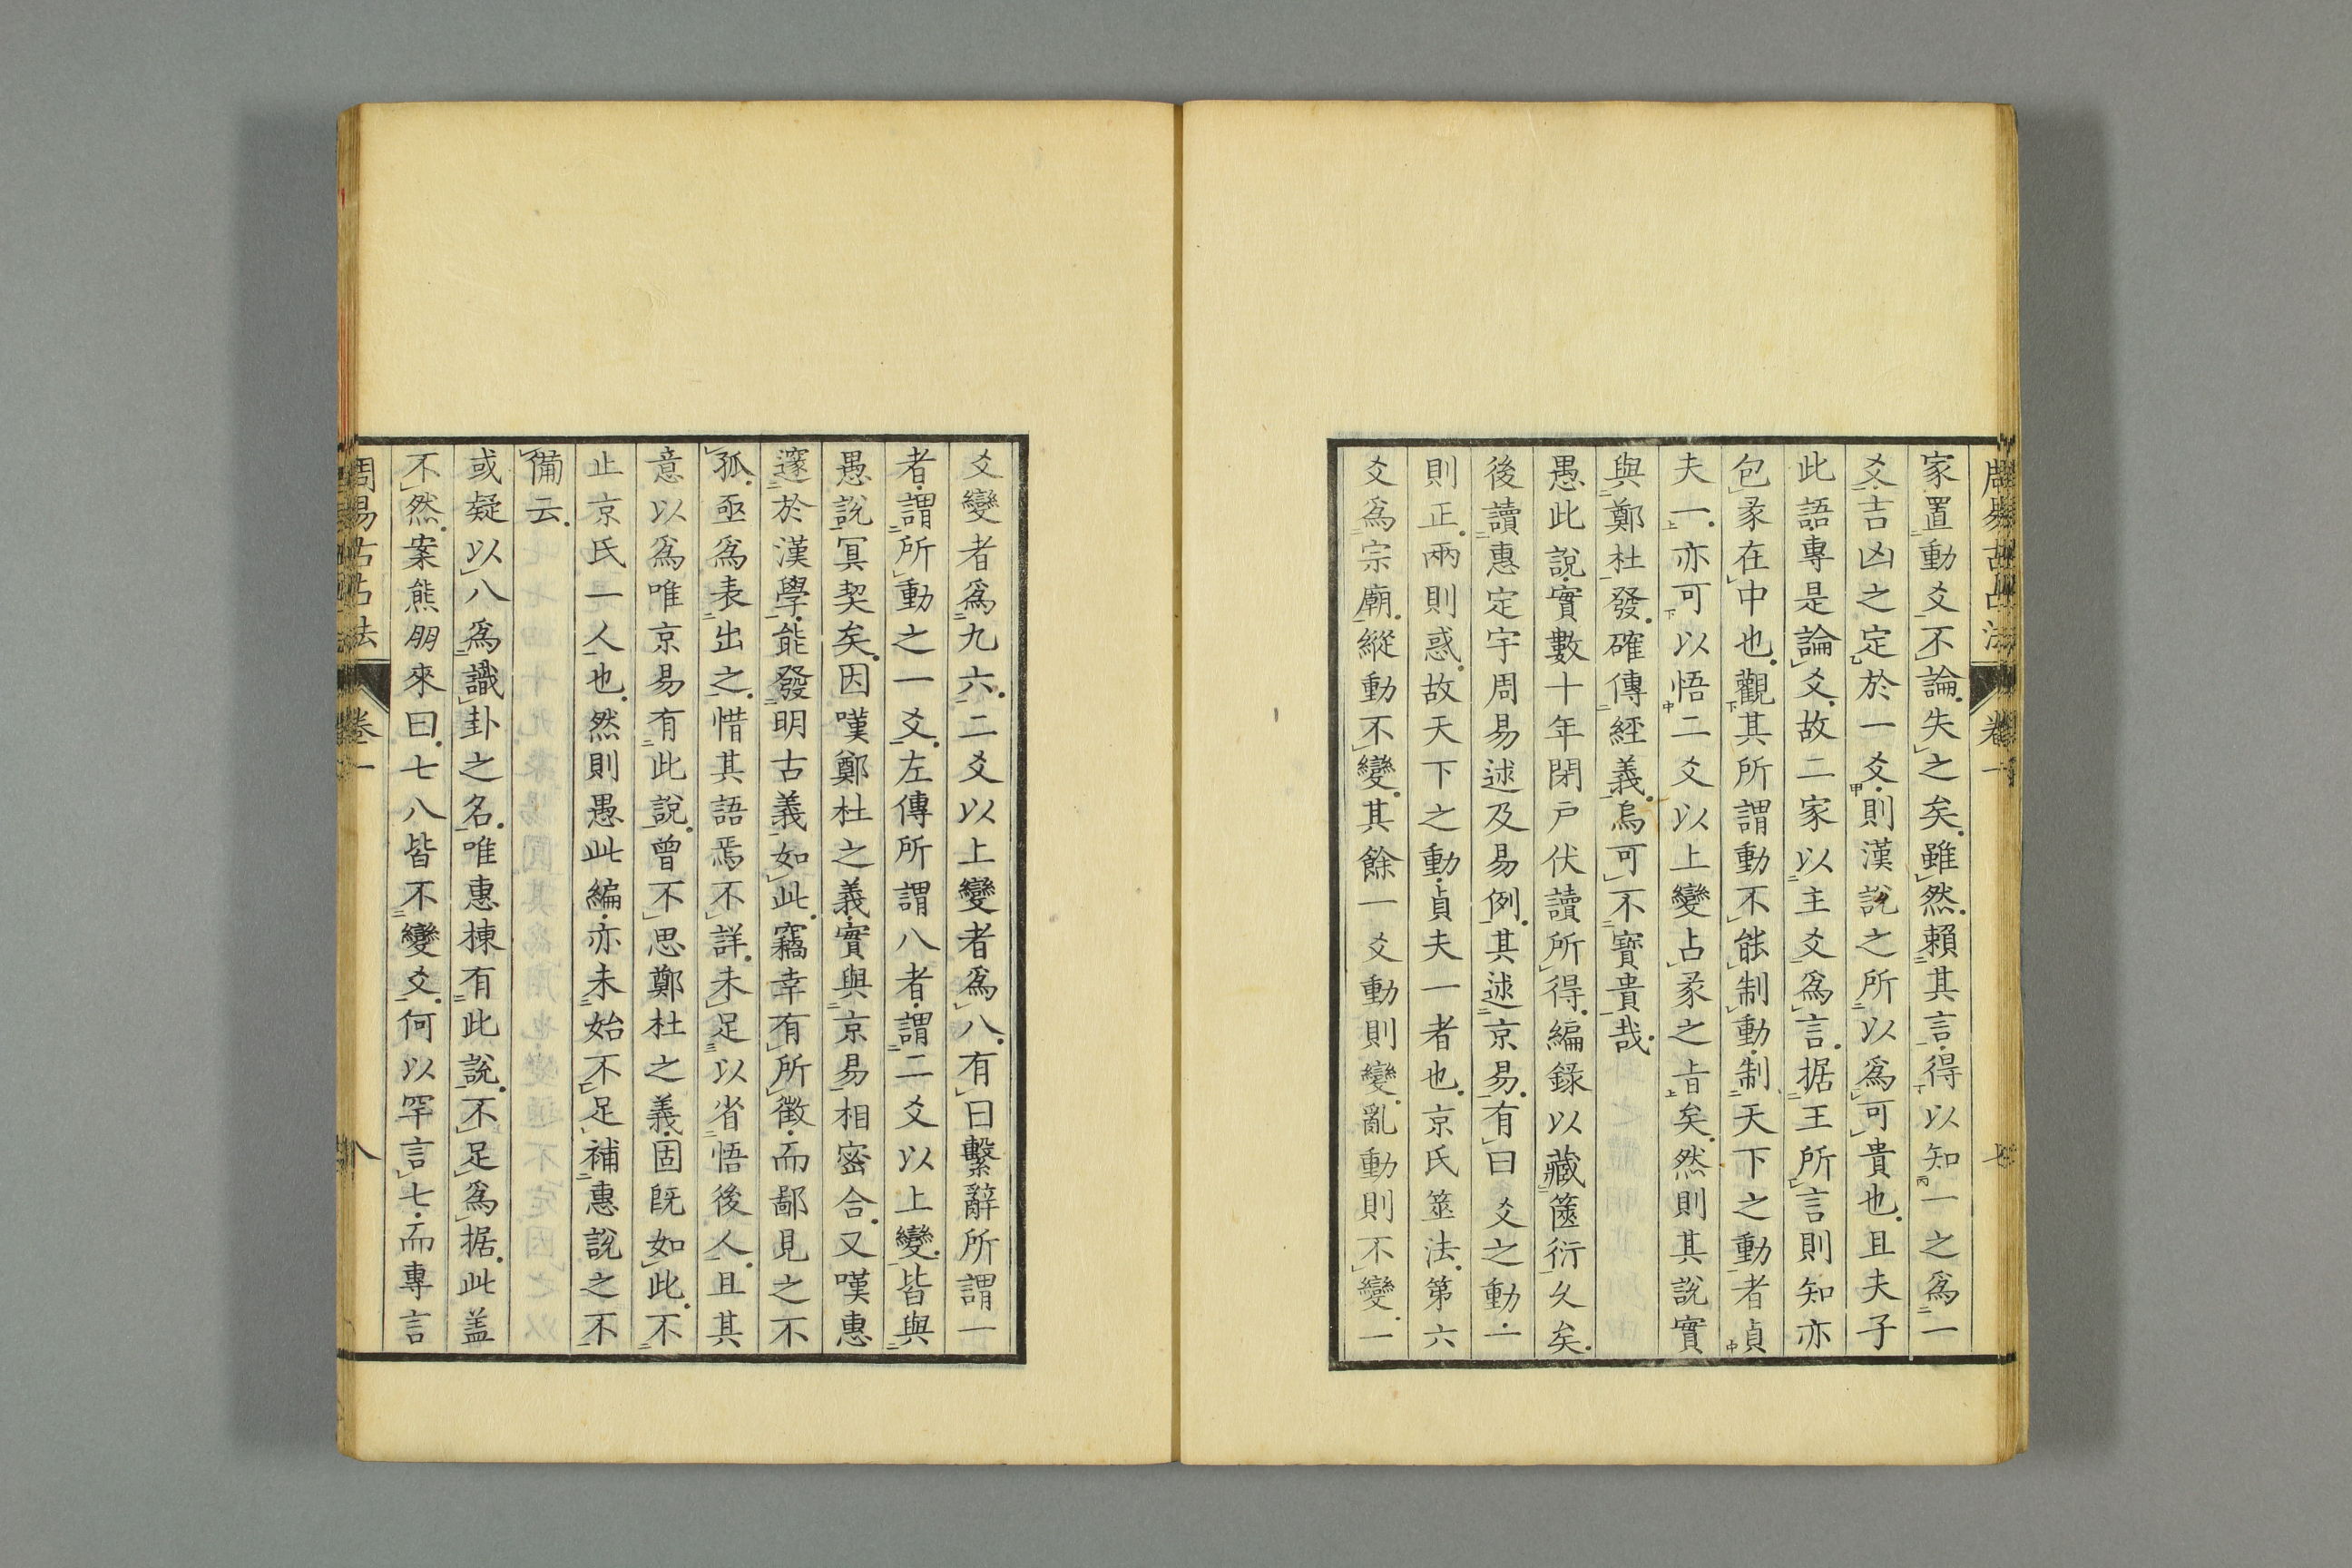 周易古占法 卷一 七
家置動爻不論失之矣雖然賴其言得以知一之爲一
爻吉凶之定於一爻則漢說之所以爲可貴也且夫子
此語專是論爻故二家以主爻爲言据王所言則知亦
包彖在中也觀其所謂動不能制動制天下之動者貞
夫一亦可以悟二爻以上變占彖之旨矣然則其說實
與鄭杜發確傳經義烏可不寶貴哉
愚此說實數十年閉戶伏讀所得編錄以藏篋衍久矣
後讀惠定宇周易述及易例其述京易有曰爻之動一
則正兩則惑故天下之動貞夫一者也京氏筮法第六
爻爲宗廟縱動不變其餘一爻動則變亂動則不變一
爻變者爲九六二爻以上變者爲八有曰繫辭所謂一
者謂所動之一爻左傳所謂八者謂二爻以上變皆與
愚說冥契矣因嘆鄭杜之義實與京易相密合又嘆惠
邃於漢學能發明古義如此竊幸有所徵而鄙見之不
孤亟爲表出之惜其語焉不詳未足以省悟後人且其
意以爲唯京易有此說曾不思鄭杜之義固既如此不
止京氏一人也然則愚此編亦未始不足補惠說之不
備云
或疑以八爲識卦之名唯惠棟有此說不足爲据此盖
不然案熊朋來曰七八皆不變爻何以罕言七而專言
周易古占法 卷一 八